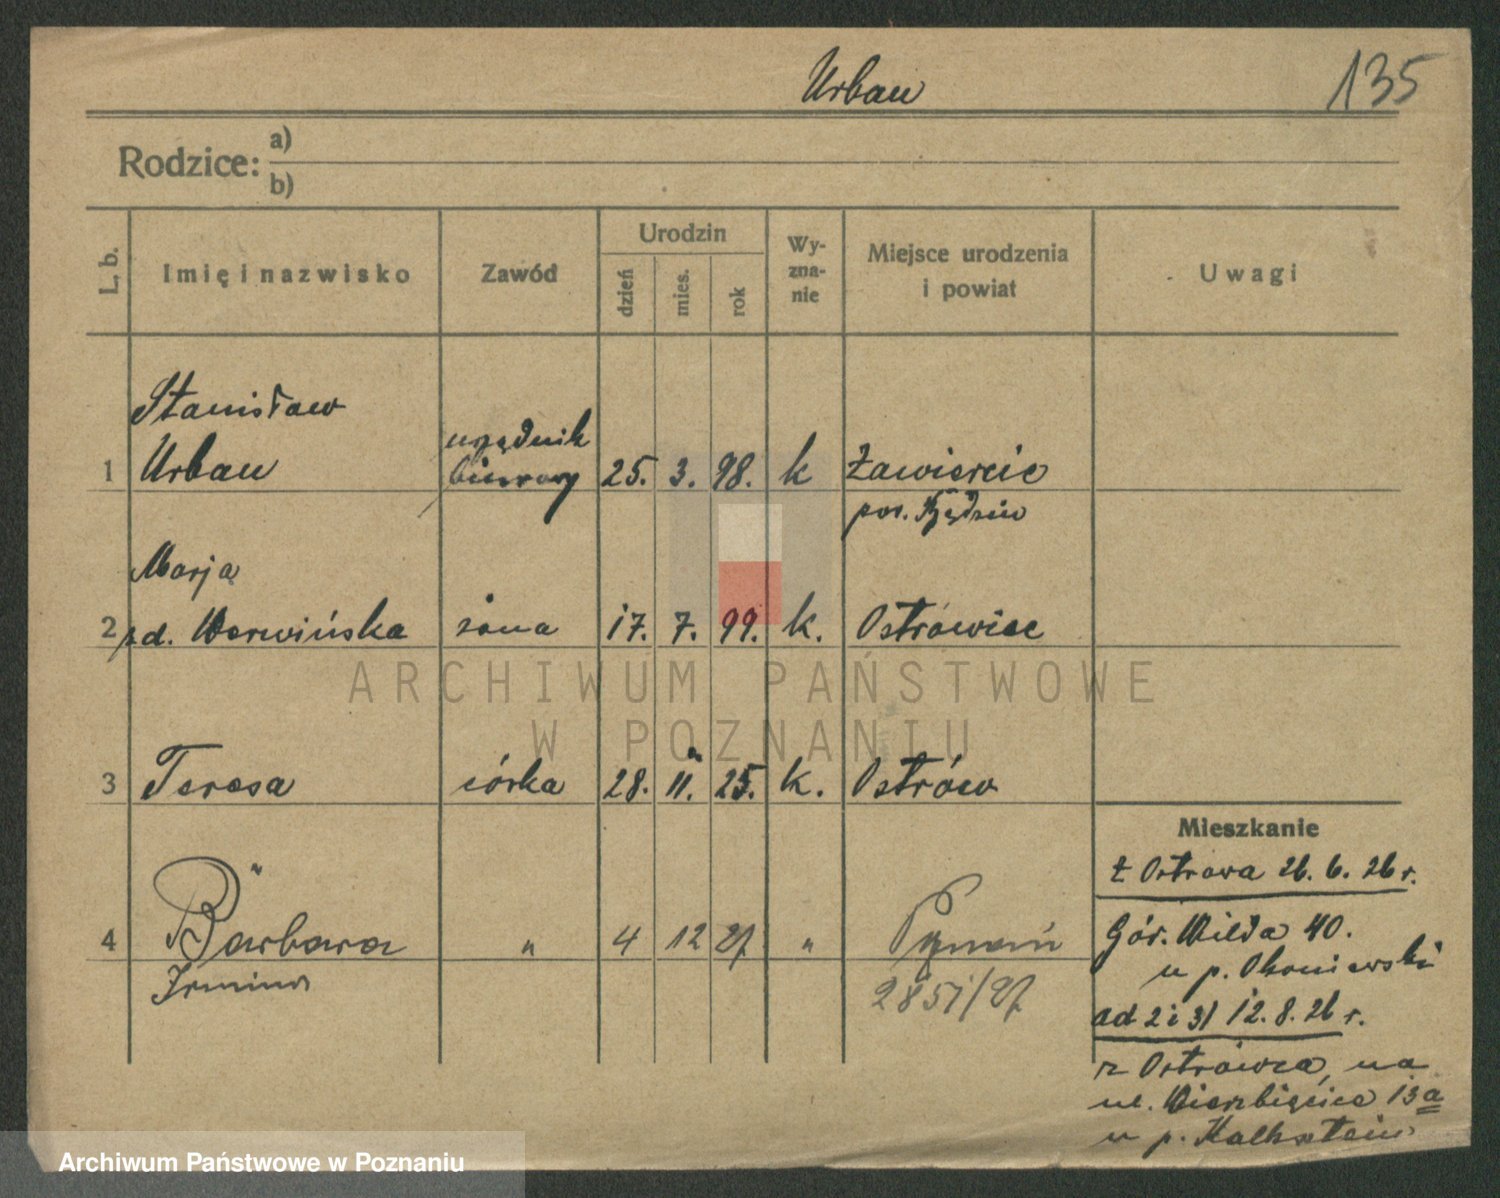 Urban
135
Rodzice: a)
b)
L. b.
Imię i nazwisko
Zawód
Urodzin
dzień
mies.
rok
Wy-
zna-
nie
Miejsce urodzenia
i powiat
Uwagi
Stanisław
urzędnik
1 Urban biurowy 25. 3. 98. k Zawiercie
pow. Będzin
Marja
2 zd. Werwińska żona 17. 7. 99. k. Ostrówiec
3 Teresa córka 28. 11. 25. k. Ostrów
Mieszkanie
z Ostrowa 26. 6. 26 r.
4 Barbara " 4 12 27 " Poznań
Gór. Wilda 40.
Irmina
2851/27
u p. Okoniewski
ad 2 i 3/ 12. 8. 26 r.
z Ostrówca, na
ul. Wierzbięcice 13a
u p. Kalkstein
ARCHIWUM PAŃSTWOWE
W POZNANIU
Archiwum Państwowe w Poznaniu